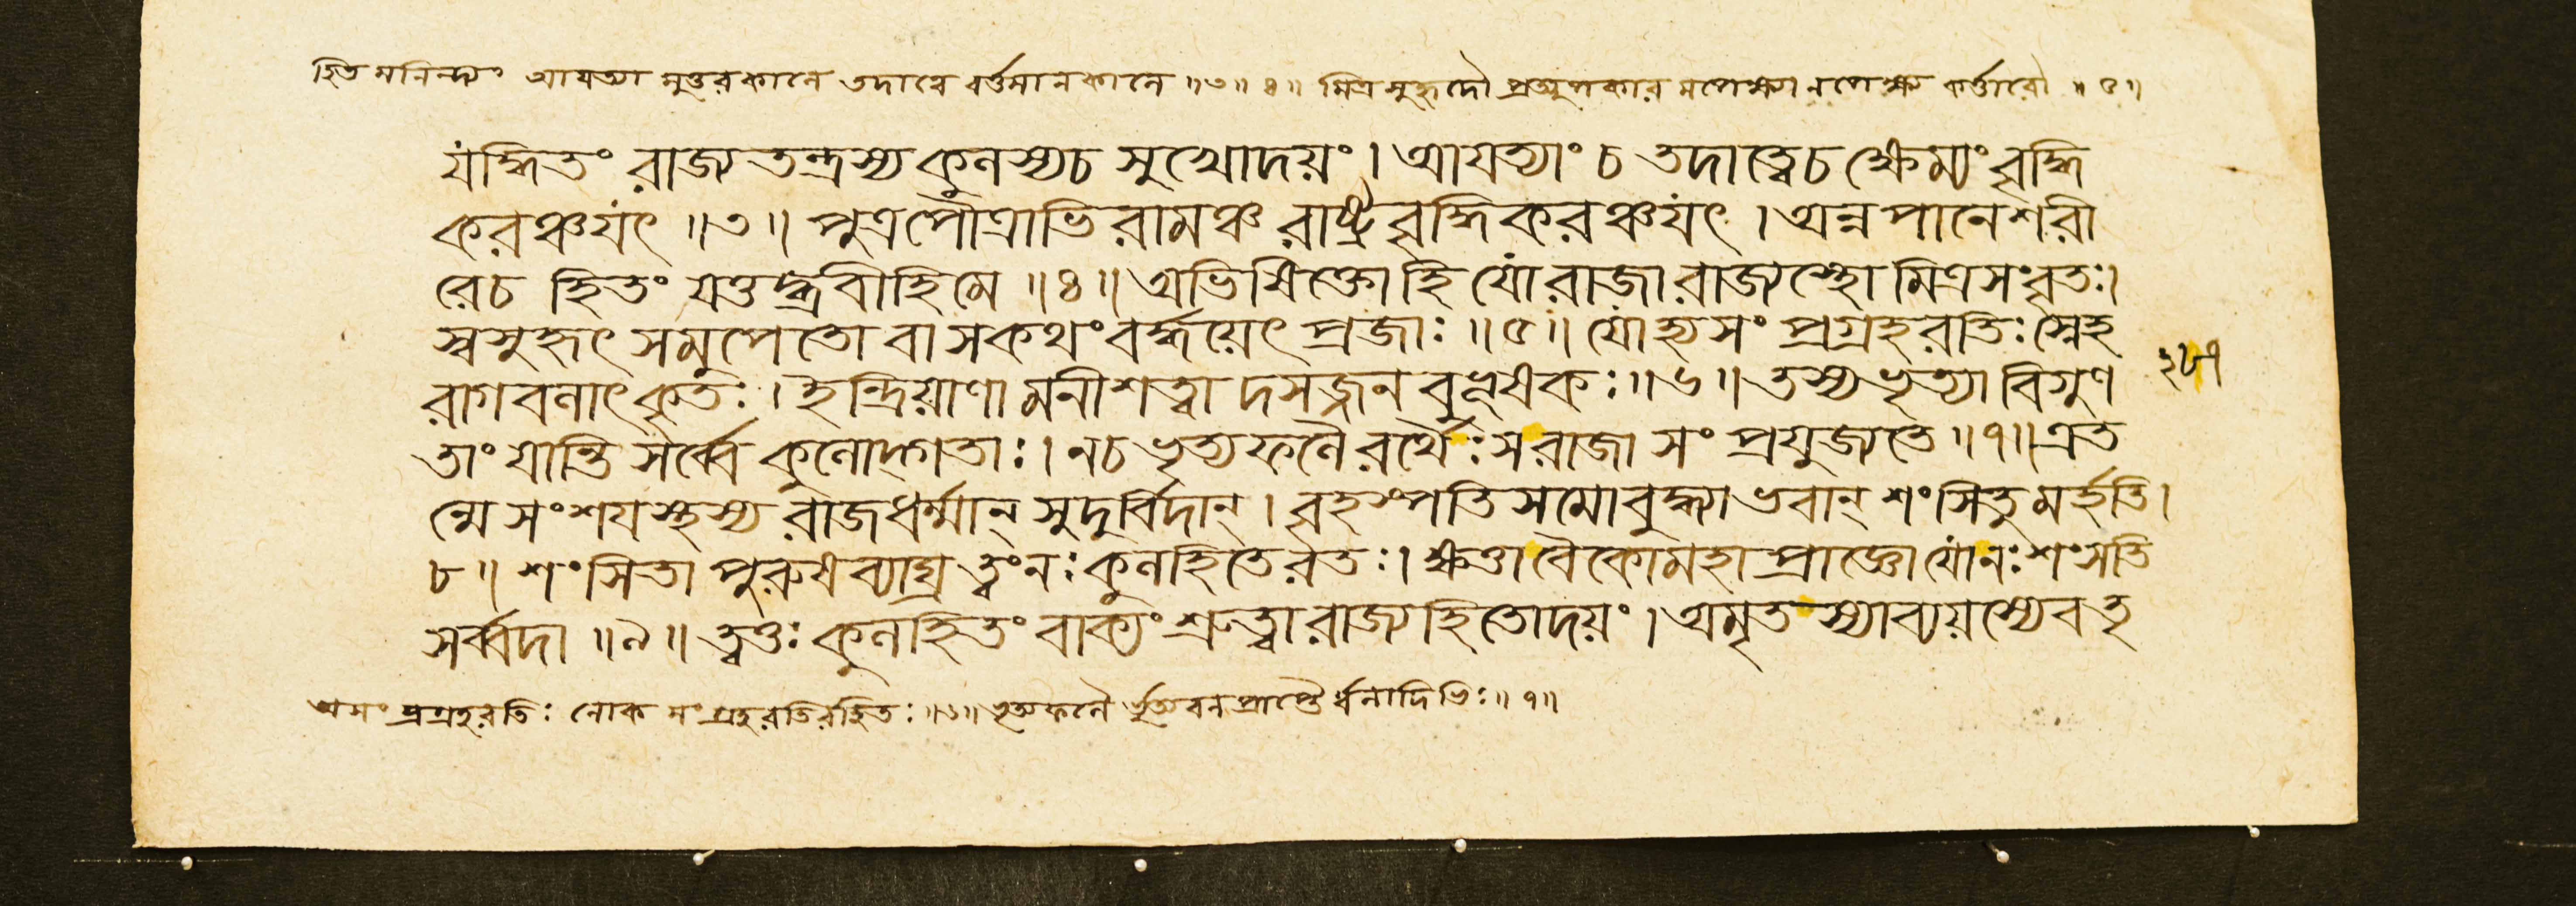 হিত মনিন্দ্যং আযত্যা মুত্তরকালে তদাত্বে বর্ত্তমানকালে ॥৩॥ ৪॥ মিত্রসুহৃদৌ প্রত্যুপকার মপেক্ষ্যানপেক্ষ্য কর্ত্তারৌ ॥ ৫॥
যদ্ধিতং রাজ্য তন্ত্রস্য কুলস্যচ সুখোদয়ং । আযত্যাং চ তদাত্বেচ ক্ষেম্যং বৃদ্ধি
করঞ্চযৎ ॥৩॥ পুত্রপৌত্রাভি রামঞ্চ রাষ্ট্রবৃদ্ধিকরঞ্চযৎ । অন্ন পানে শরী
রেচ হিতং যত্তদ্ব্রবীহিমে ॥৪॥ অভিষিক্তোহি যোরাজা রাজ্যস্থো মিত্রসংবৃতঃ।
স্বসুহৃৎ সমুপেতো বা সকথং বর্দ্ধয়েৎ প্রজাঃ ॥৫॥ যোহ্যসং প্রগ্রহরতিঃ স্নেহ
রাগবলাৎকৃতঃ । ইন্দ্রিয়াণা মনীশত্বা দসজ্জন বুভূষকঃ ॥৬॥ তস্যভৃত্যা বিগুণ
তাং যান্তি সর্ব্বে কুলোদ্গতাঃ । নচ ভৃত্যফলৈ রর্থৈঃ সরাজা সং প্রযুজ্যতে ॥৭॥ এত
ন্মে সংশযস্থস্য রাজধর্ম্মান্ সুদুর্ব্বিদান্ । বৃহস্পতি সমোবুদ্ধ্যা ভবান্ শংসিতু মর্হতি।
৮॥ শংসিতা পুরুষব্যাঘ্র ত্বংনঃ কুলহিতে রতঃ। ক্ষত্তাবৈকোমহা প্রাজ্ঞো যোনঃ শংসতি
সর্ব্বদা ॥৯॥ ত্বত্তঃ কুলহিতং বাক্যং শ্রুত্বা রাজ্যহিতোদয়ং । অমৃত স্যাব্যয়স্যেব তৃ
২৮৭
অসং প্রগ্রহরতিঃ লোক সংগ্রহরতিরহিতঃ ॥৬॥ ভৃত্যফলৈ র্ভৃত্যবলপ্রাপ্তৈ র্ধনাদিভিঃ ॥ ৭॥